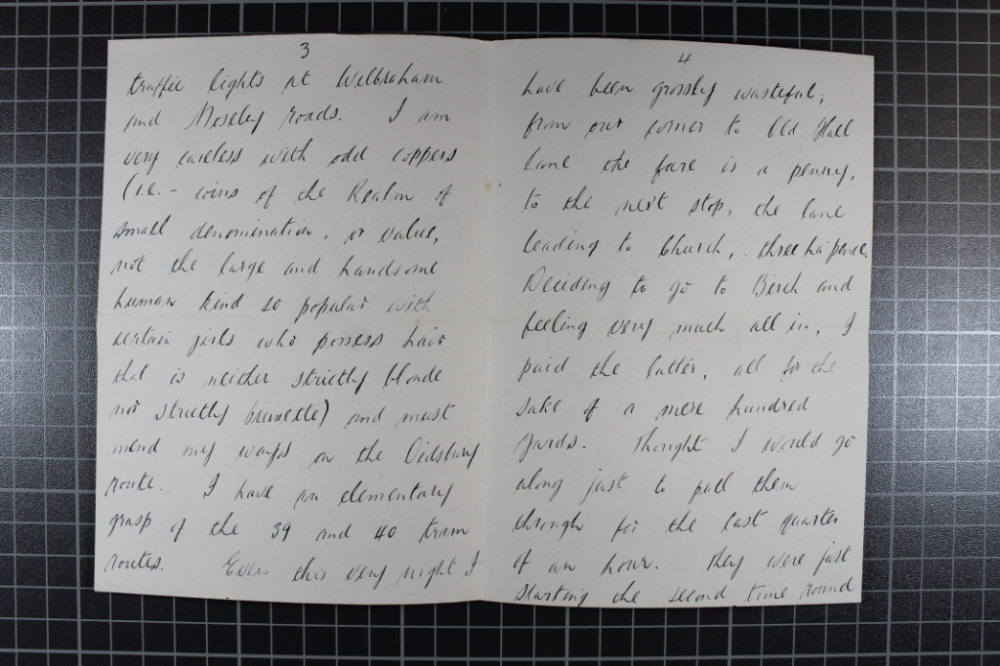 3
traffic lights at Wilbraham
and Moseley roads. I am
very careless with odd coppers
(i.e. - coins of the Realm of
small denomination, or value,
not the large and handsome
human kind so popular with
certain girls who possess hair
that is neither strictly blonde
nor strictly brunette) and must
mend my ways on the Didsbury
route. I have an elementary
grasp of the 39 and 40 tram
routes. Even this very night I
4
have been grossly wasteful;
from our corner to Old Hall
lane the fare is a penny,
to the next stop, the lane
leading to Church, three ha'pence.
Deciding to go to Birch and
feeling very much all in, I
paid the latter, all for the
sake of a mere hundred
yards. Thought I would go
along just to pull them
through for the last quarter
of an hour. They were just
starting the second time round